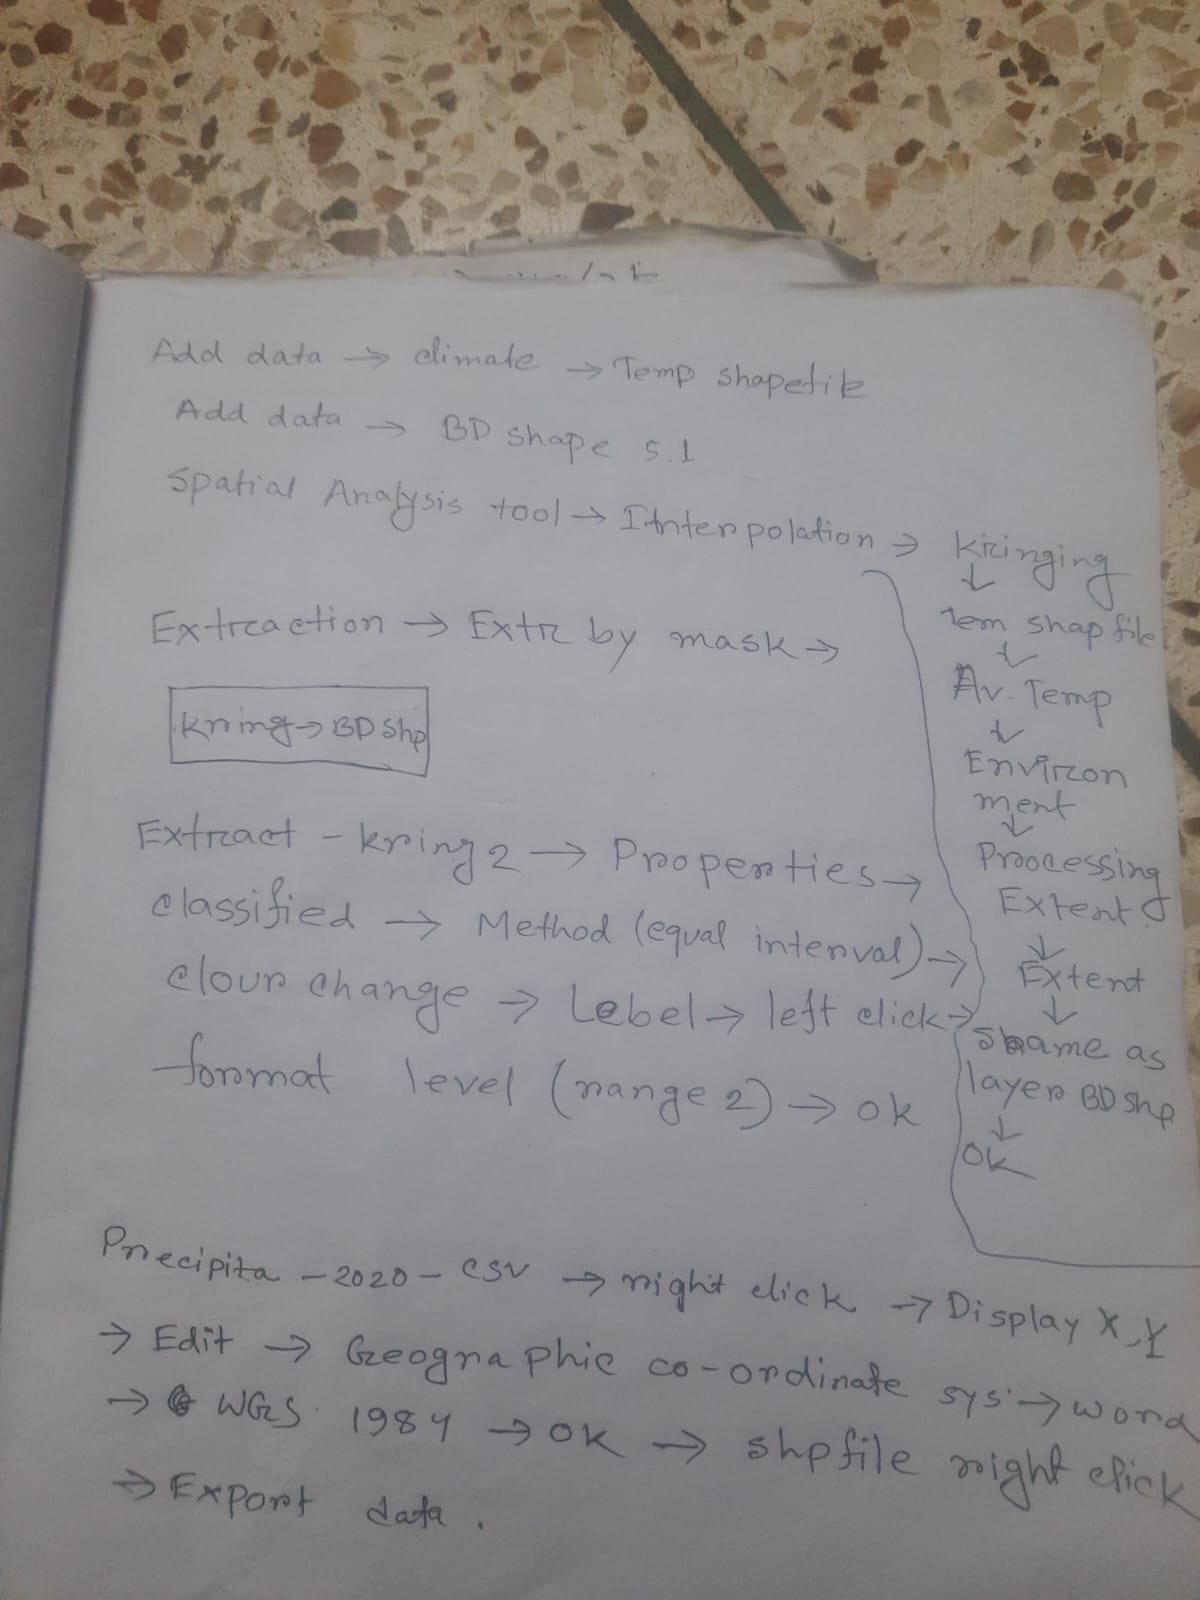 Add data → climate → Temp shapefile
Add data → BD shape 5.1
Spatial Analysis tool → Interpolation → Kringing
↓
Tem shap file
↓
Av. Temp
↓
Environ
ment
↓
Processing
Extent
↓
Extent
↓
Same as
layer BD shp
↓
OK
Extraction → Extr by mask →
kring → BD shp
Extract - kring 2 → Properties →
classified → Method (equal interval) →
clour change → Lebel → left click →
format level (range 2) → ok
Precipita - 2020 - csv → right click → Display X,Y
→ Edit → Geographic co-ordinate sys → word
→ WGS 1984 → OK → shpfile right click
→ Export data.